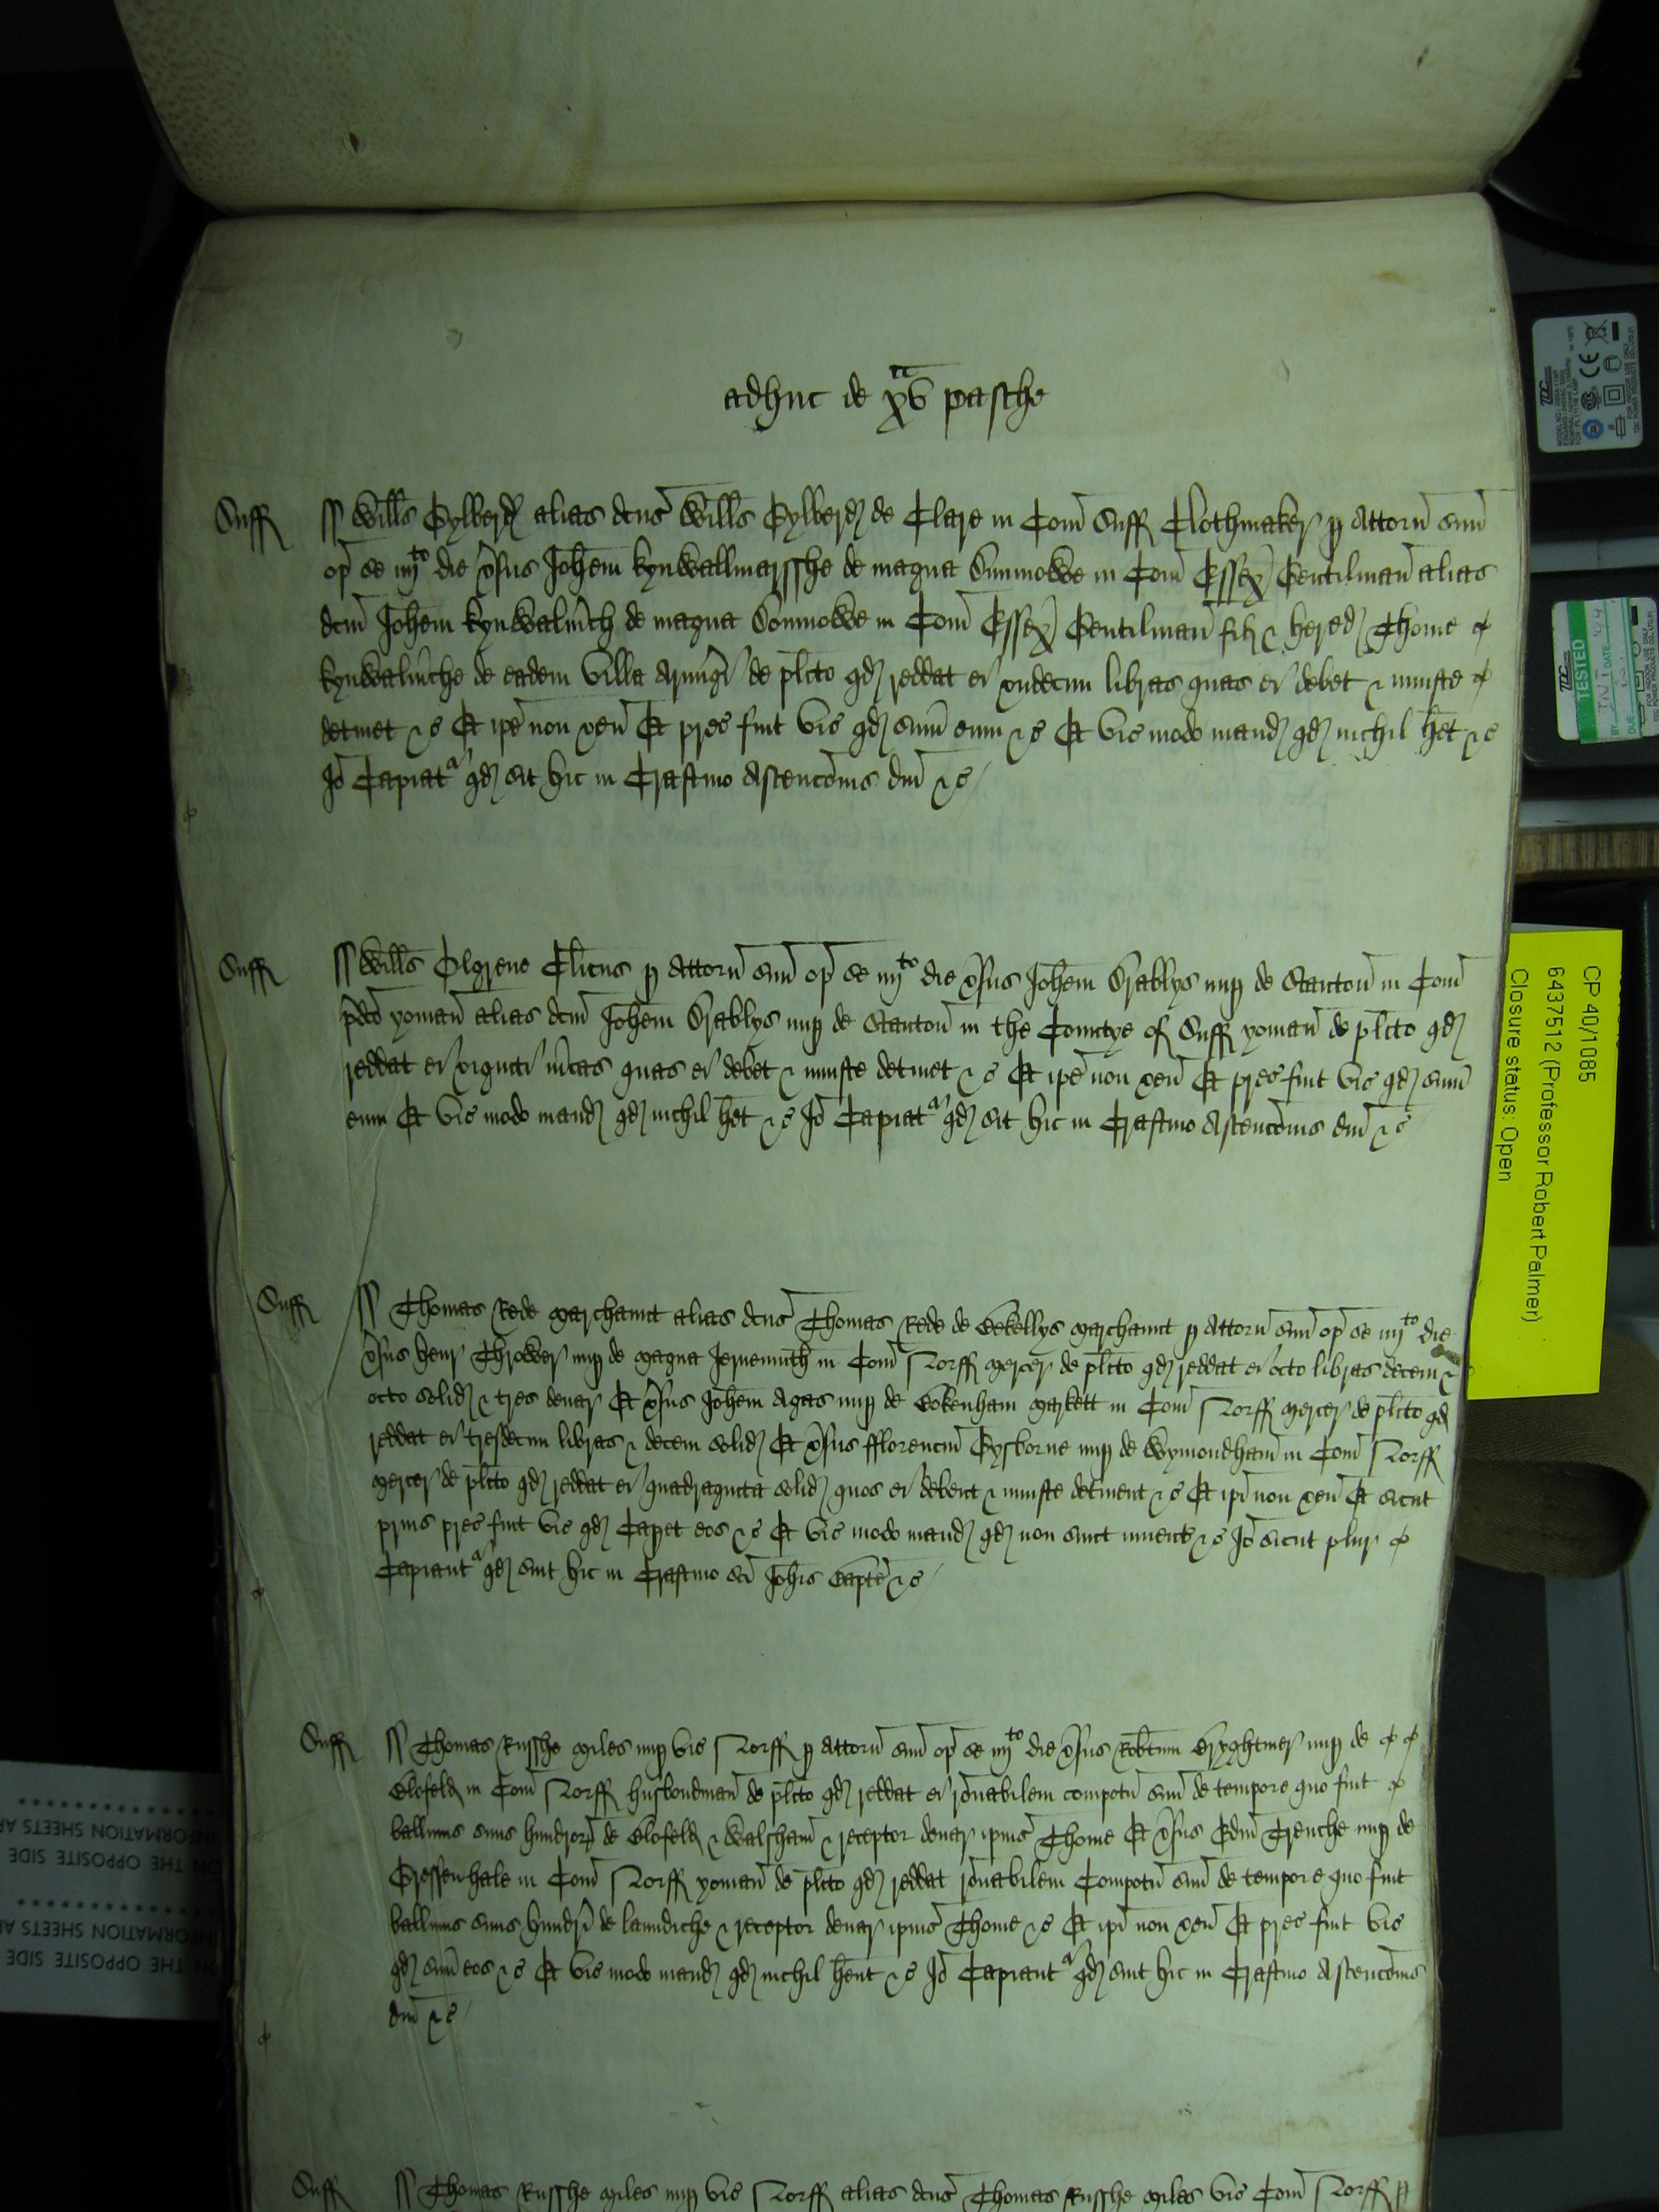 adhuc de xva pasche
Suff ss Wills Gylberd alias dcus Wills Gylberd de Clare in Com Suff Clothmaker p Attorn suu
op se iiijto die vsus Johem kynwallmarsshe de magna Dunmowe in Com Essex Gentilman alias
dcm Johem kynwalmch de magna Donmowe in Com Essex Gentilman fil & hered Thome
kynwalmche de eadem villa Armigi de plito qd reddat ei undecim libras quas ei debet & iniuste
detinet &c Et ipe non ven Et prec fuit vic qd sum eum &c Et vic modo mand qd nichil het &c
Io Capiatr qd sit hic in Crastino Ascencois dni &c
Suff ss Wills Olgrene Clicus p Attorn suu op se iiijto die vsus Johem Drablys nup de Stanton in Com
pdco yoman alias dcm Johem Drablys nup de Stanton in the Comtye of Suff yoman de plito qd
reddat ei viginti mcas quas ei debet & iniuste detinet &c Et ipe non ven Et prec fuit vic qd sum
eum Et vic modo mand qd nichil het &c Io Capiatr qd sit hic in Crastino Ascencois dni &c
Suff ss Thomas Rede Marchaunt alias dcus Thomas Rede de Bekellys Marchaunt p Attorn suu op se iiijto die
vsus henr Thrower nup de magna Jernemuth in Com Norff Mercer de plito qd reddat ei octo libras decem &
octo solid & tres denar Et vsus Johem Agas nup de Bokenham Markett in Com Norff Mercer de plito qd
reddat ei tresdecim libras & decem solid Et vsus fflorencm Kysborne nup de Wymondham in Com Norff
Mercer de plito qd reddat ei quadraginta solid quos ei debent & iniuste detinent &c Et ipi non ven Et sicut
prius prec fuit vic qd Capet eos &c Et vic modo mand qd non sunt invent &c Io sicut plur
Capiantr qd sint hic in Crastino sci Johis Bapte &c
Suff ss Thomas Russhe Miles nup vic Norff p Attorn suu op se iiijto die vsus Robtum Bryghtmer nup de
Blofeld in Com Norff husbondman de plito qd reddat ei ronabilem compotu suu de tempore quo fuit
ballivus suus hundror de Blofeld & Walsham & receptor denar ipius Thome Et vsus Edm Trenche nup de
Gressenhale in Com Norff yoman de plito qd reddat ronabilem Compotu suu de tempore quo fuit
ballivus suus hundri de laundiche & receptor denar ipius Thome &c Et ipi non ven Et prec fuit vic
qd sum eos &c Et vic modo mand qd nichil hent &c Io Capiantr qd sint hic in Crastino Ascencois
dni &c
Suff ss Thomas Russhe Miles nup vic Norff alias dcus Thomas Russhe Miles vic Com Norff p
CP 40/1085
6437512 (Professor Robert Palmer)
Closure status: Open
TESTED
INFORMATION SHEETS
ON THE OPPOSITE SIDE
INFORMATION SHEETS
THE OPPOSITE SIDE